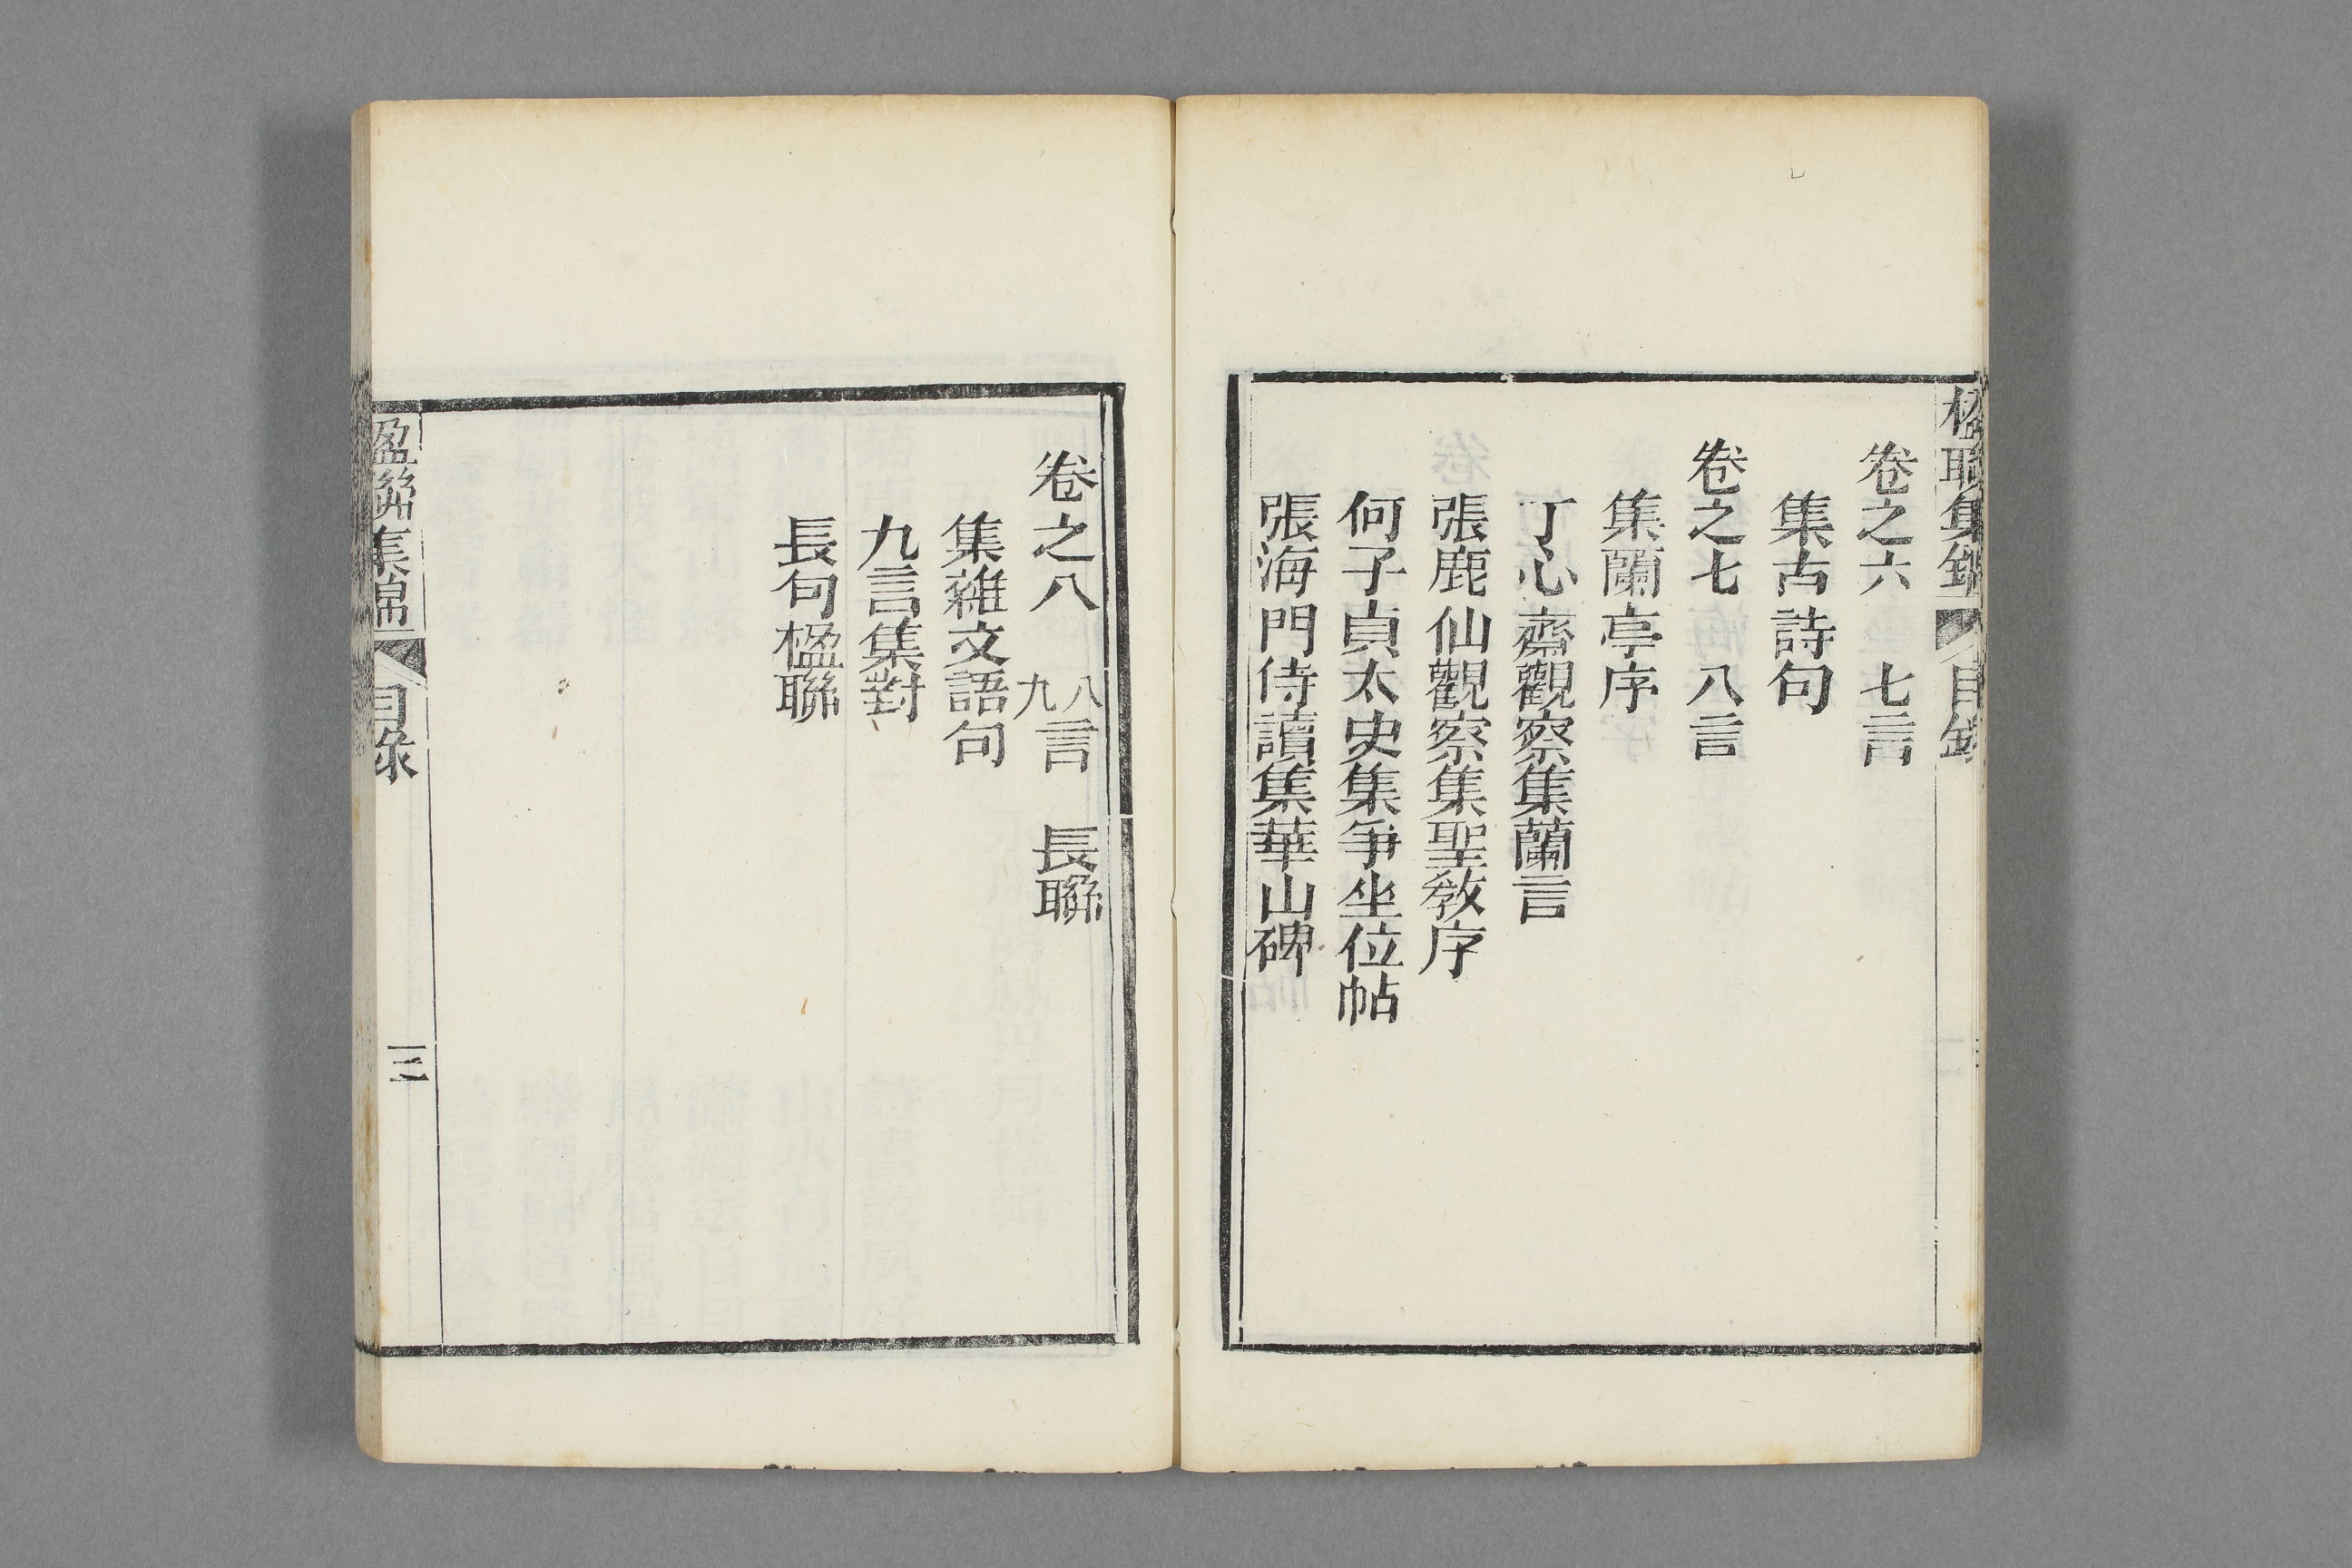 楹聯集錦 目錄
卷之六 七言
集古詩句
卷之七 八言
集蘭亭序
丁心齋觀察集蘭言
張鹿仙觀察集聖教序
何子貞太史集爭坐位帖
張海門侍讀集華山碑
卷之八 八九言 長聯
集雜文語句
九言集對
長句楹聯
楹聯集錦 目錄 三